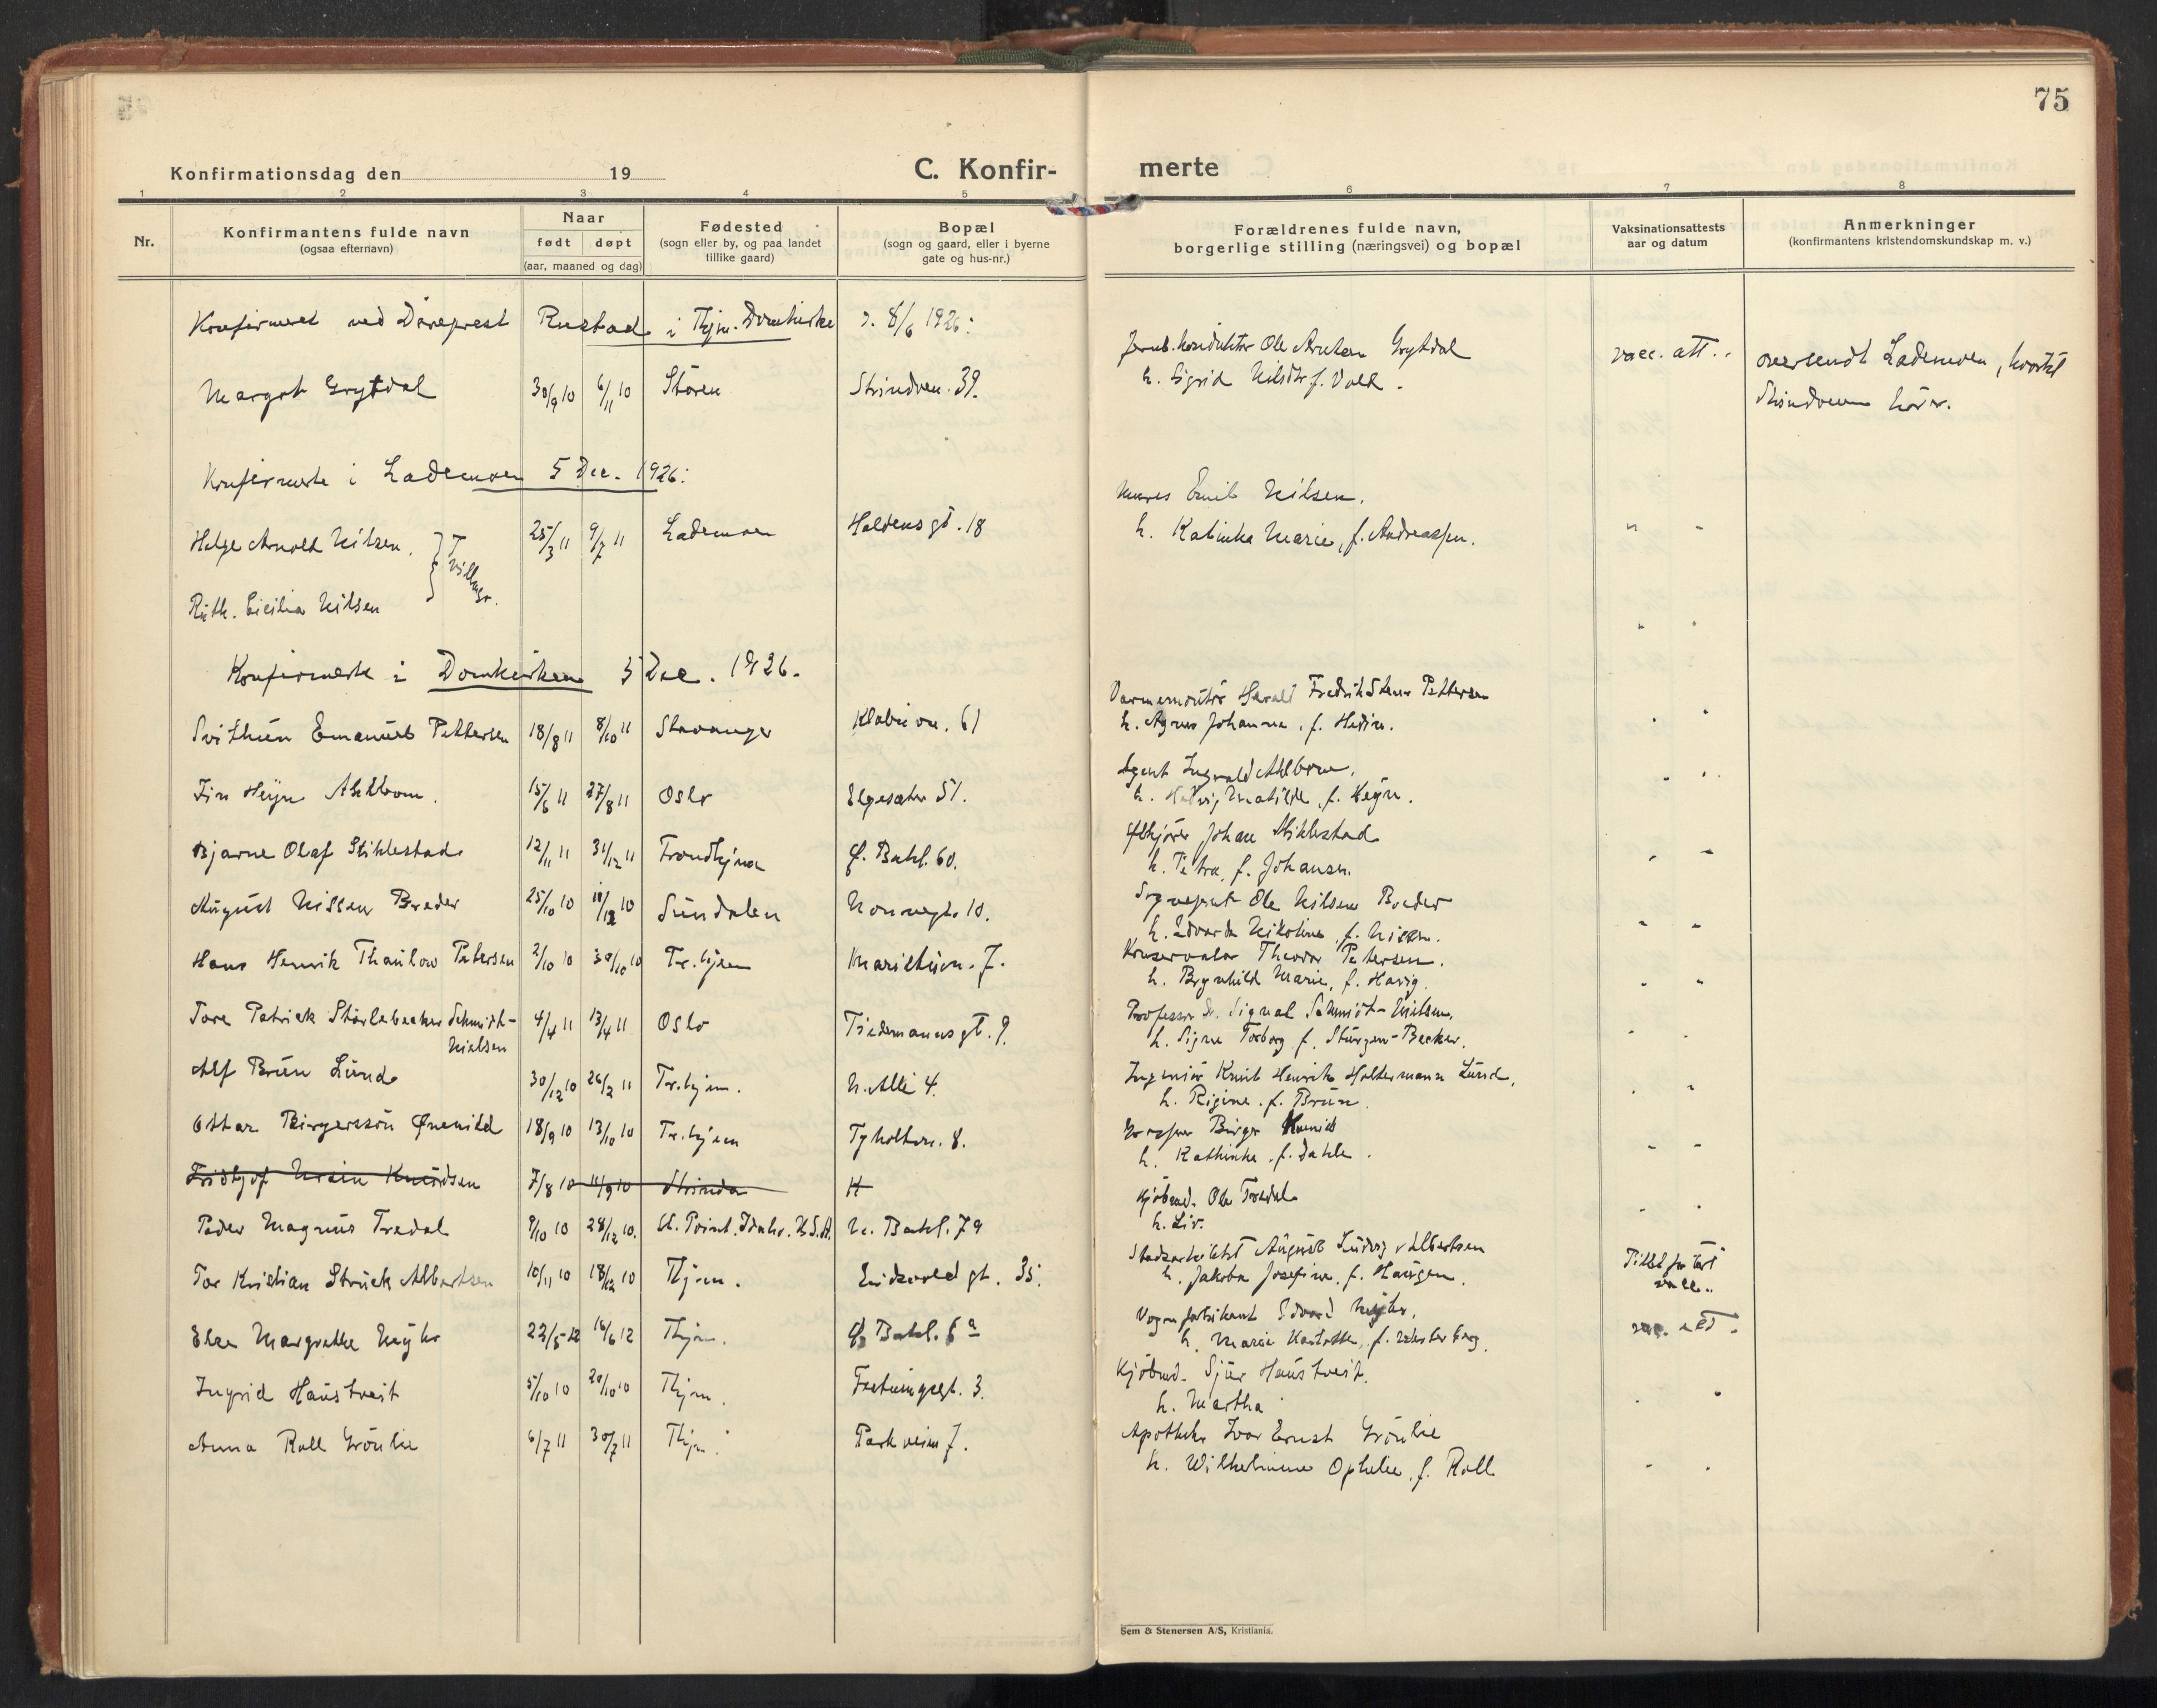 75
Konfirmationsdag den 19
C. Konfir-
merte
1 2 3 4 5 6 7 8
Nr.
Konfirmantens fulde navn
(ogsaa efternavn)
Naar
født døpt
(aar, maaned og dag)
Fødested
(sogn eller by, og paa landet
tillike gaard)
Bopæl
(sogn og gaard, eller i byerne
gate og hus-nr.)
Forældrenes fulde navn,
borgerlige stilling (næringsvei) og bopæl
Vaksinationsattests
aar og datum
Anmerkninger
(konfirmantens kristendomskundskap m. v.)
Konfirmeret ved Døveprest Rustad i Thjm. Domkirke d. 8/6 1926:
Margot Grytdal 30/9 10 6/11 10 Støren Strindvn. 39.
Jernb. konduktør Ole Arntsen Grytdal
h. Sigrid Nilsdtr f. Vold.
vacc. att.
oversendt Lademoen, hvortil
Strindveien hører.
Konfirmerte i Lademoen 5 Dec. 1926:
Helge Arnold Nilsen. 25/3 11 9/7 11 Lademoen Haldens gt. 18
Murer Emil Nilsen.
h. Katinka Marie, f. Andreassen.
" "
Tvillinger.
Ruth. Cicilia Nilsen
" "
Konfirmerte i Domkirken 5 Dec. 1926.
Svithun Emanuel Pettersen 18/8 11 8/10 11 Stavanger Klæbuvn. 61
Varmemontør Harald Fredrik Pettersen
h. Agnes Johanna, f. Hedin.
" "
Finn Heyn Ahlbom. 15/6 11 27/8 11 Oslo Elgesæter 51.
Agent Ingvald Ahlbom.
h. Hedvig Matilde, f. Heyn.
" "
Bjarne Olaf Stiklestad 12/11 11 31/12 11 Trondhjem Ø. Bakl. 60.
Johan Stiklestad
h. Petra, f. Johansen.
" "
August Nissen Breder 25/10 10 18/12 10 Sundalen Nonnegt. 10.
Sogneprest Ole Nilsen Breder
h. Edvarda Nikoline, f. Nissen.
" "
Hans Henrik Thaulow Petersen 2/10 10 30/10 10 Tr.hjem 7.
Konservator Theodor Petersen.
h. Brynhild Marie, f. Havig.
" "
Tore Patrick Størlebecker Schmidt-
Nielsen
4/4 11 13/4 11 Oslo Tidemannsgt. 9.
Professor Dr. Sigval Schmidt-Nielsen,
h. Signe Torborg f. Sturzen-Becker.
" "
Alf Bruun Lund 30/12 10 26/2 11 Tr.hjem. N. Allé 4.
Ingeniør Knut Henrik Holtermann Lund,
h. Regine, f. Bruun.
" "
Ottar Birgersson Kvenild 18/9 10 13/10 10 Tr.hjem Tyholtvn. 8.
Birger Kvenild
h. Kathinka, f. Dahle.
" "
Fridtjof Knudsen 7/8 10 11/9 10 Strinda H
Peder Magnus Tredal 9/10 10 28/12 10. St. Point. Idaho. U.S.A. N. Bakl. 79
Kjøbmd. Ole Tredal
h. Liv.
" "
Tor Kristian Struck Albertsen 10/11 10 18/12 10 Thjem. Eidsvold gt. 35.
Stadsarkitekt August Ludvig Albertsen
h. Jakoba Josefine, f. Haugen.
Else Margrethe Myhr 22/5 12 16/6 12 Thjem. Ø. Bakl. 6 a
Vognfabrikant Edvard Myhr.
h. Marie Karlotte, f. Westerberg.
vac. att.
Ingrid Haustveit 5/10 10 20/10 10 Thjem. Festningsgt. 3.
Kjøbmd. Sjur Haustveit.
h. Martha
" "
Anna Roll Grønlie 6/7 11 30/7 11 Thjem. Parkveien 7.
Apotheker Ivar Ernst Grønlie
h. Wilhelmine Ophelie, f. Roll
" "
Sem & Stenersen A/S, Kristiania.